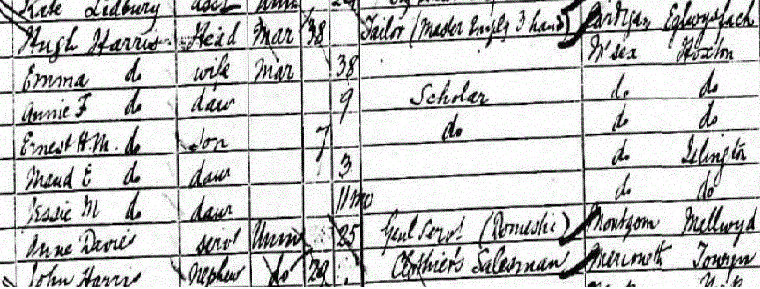 Kate Lidbury
Hugh Harris Head Mar 38 Tailor (Master Empg 3 hands) Cardigan Eglwysfach
Emma do wife Mar 38 M'sex Hoxton
Annie F do daur 9 Scholar do do
Ernest H.M. do Son 7 do do do
Maud E do daur 3 do Islington
Jessie M do daur 11mo do do
Anne Davies servt Unm 25 Genl Servt (Domestic) Montgom Mallwyd
John Harris Nephew do 29 Clothier's Salesman Merioneth Towyn